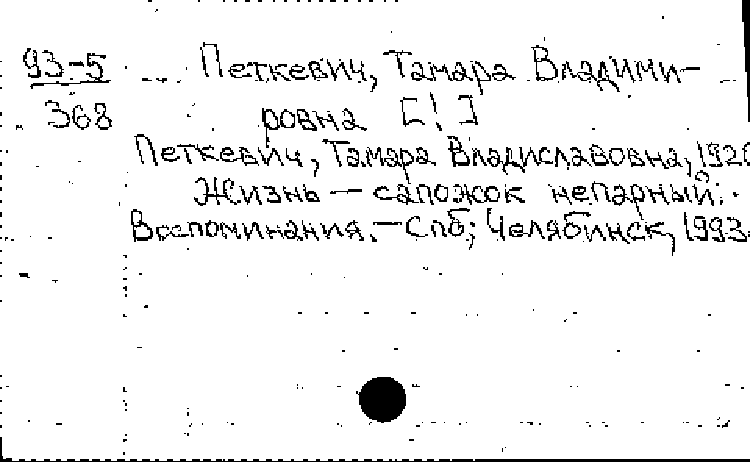 93-5 Петкевич, Тамара Владими-
368 ровна [!]
Петкевич, Тамара Владиславовна, 1920
Жизнь — сапожок непарный:
Воспоминания. — Спб; Челябинск, 1993.